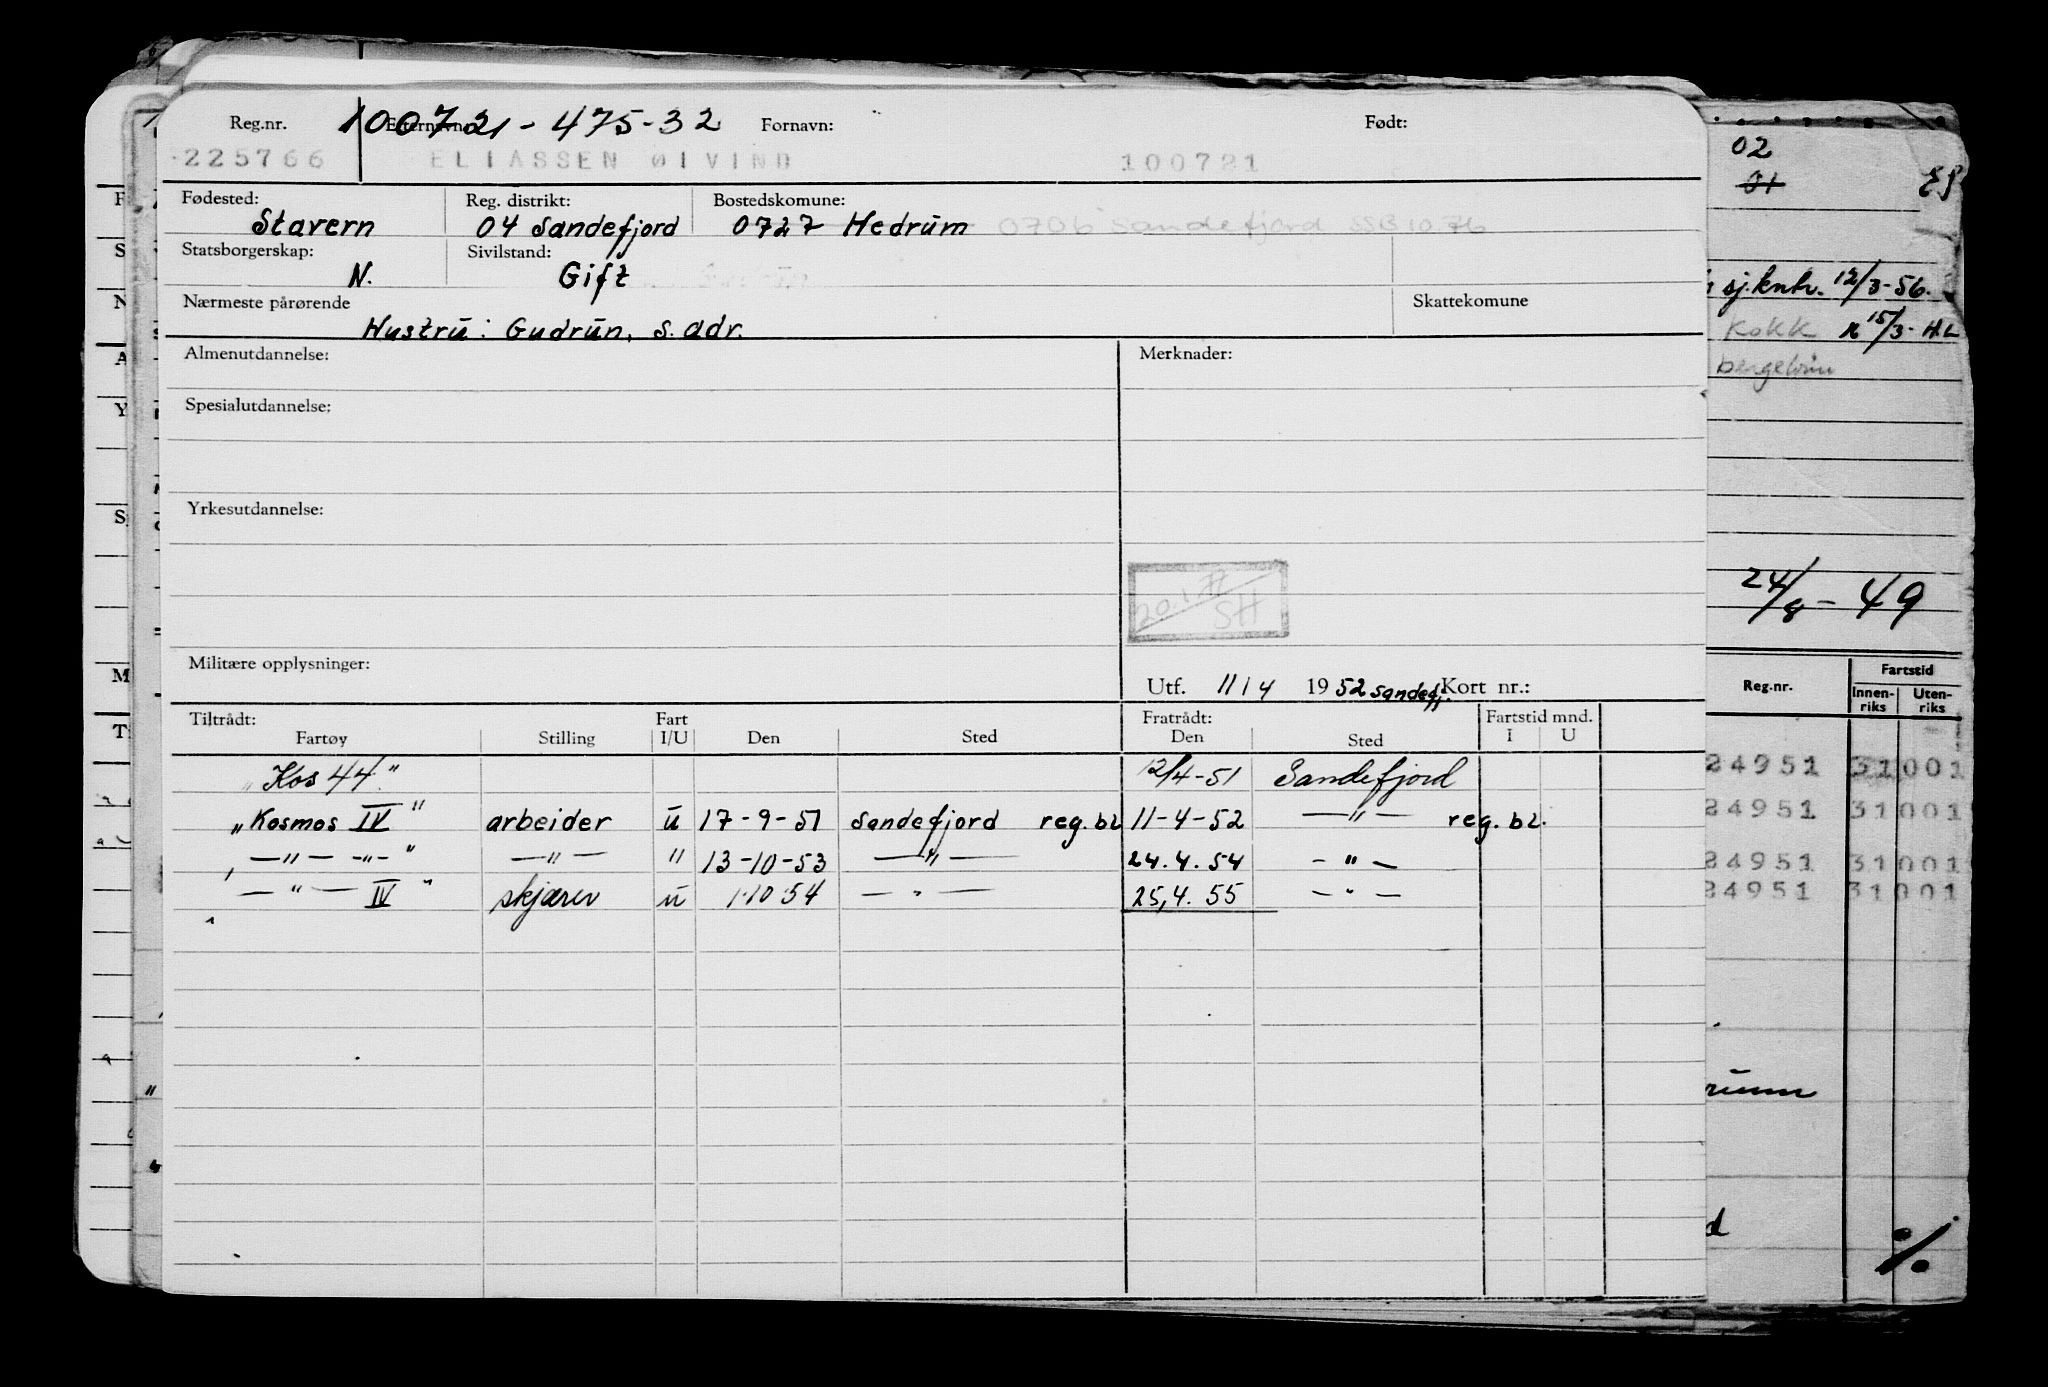 Reg.nr. Etternavn: 100721-475-32 Fornavn: Født:
225766 ELIASSEN ØIVIND 100721
Fødested: Reg. distrikt: Bostedskomune:
Stavern 04 Sandefjord 0727 Hedrum 0706 Sandefjord SSB 10 76
Statsborgerskap: Sivilstand:
N. Gift
Nærmeste pårørende Skattekomune
Hustru: Gudrun, s. adr.
Almenutdannelse: Merknader:
Spesialutdannelse:
Yrkesutdannelse:
SH
Militære opplysninger:
Utf. 11/4 1952 Sandefj. Kort nr.:
Tiltrådt: Fart Fratrådt: Fartstid mnd.
Fartøy Stilling I/U Den Sted Den Sted I U
"Kos 44" 12/4-51 Sandefjord
"Kosmos IV" arbeider u 17-9-51 Sandefjord reg.bl 11-4-52 —"— reg. bl.
—"— -"-" —"— " 13-10-53 —"— 24.4.54 -"-
—"— IV" skjærer u 1.10.54 —"— 25,4.55 -"-
02
01
sj.kntr. 12/3-56.
Kokk 15/3- H.L
24/8-49
Reg.nr. Fartstid
Innen-riks Uten-riks
24951 31001
24951 31001
24951 31001
24951 31001
rum
d
%